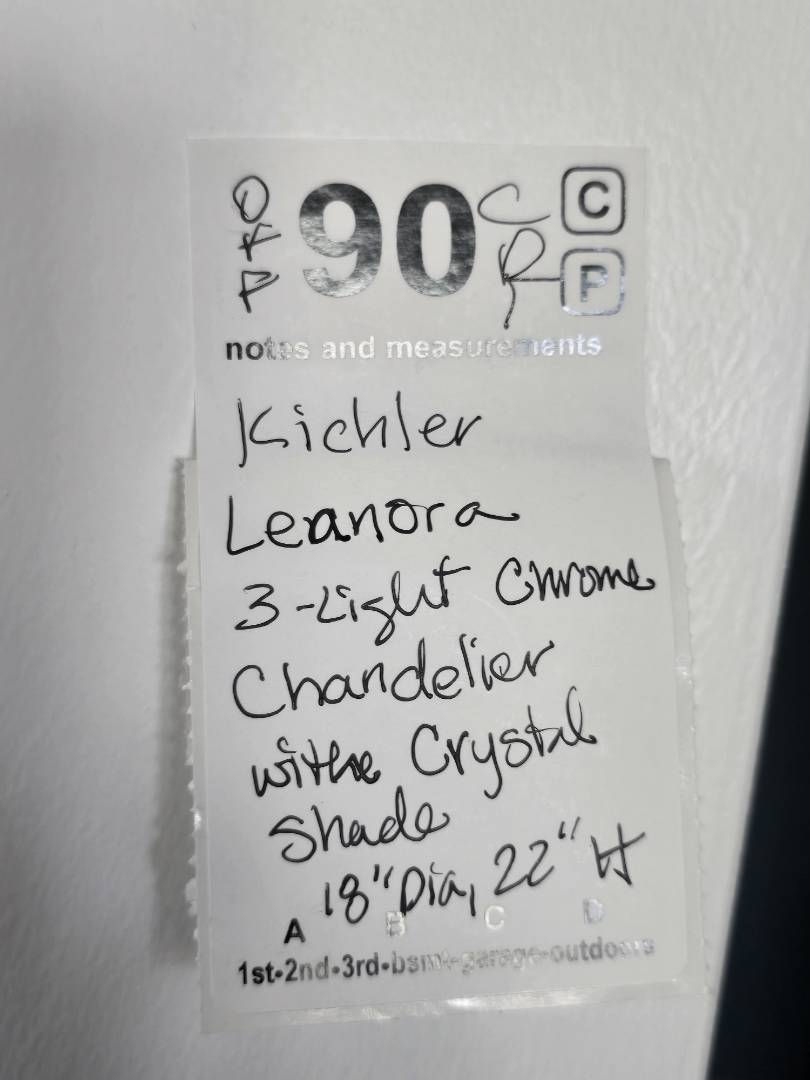 OFP 90 CR C P
notes and measurements
Kichler
Leanora
3-Light Chrome
Chandelier
withe Crystal
Shade
18" Dia, 22" H
A B C D
1st-2nd-3rd-bsmt-garage-outdoors